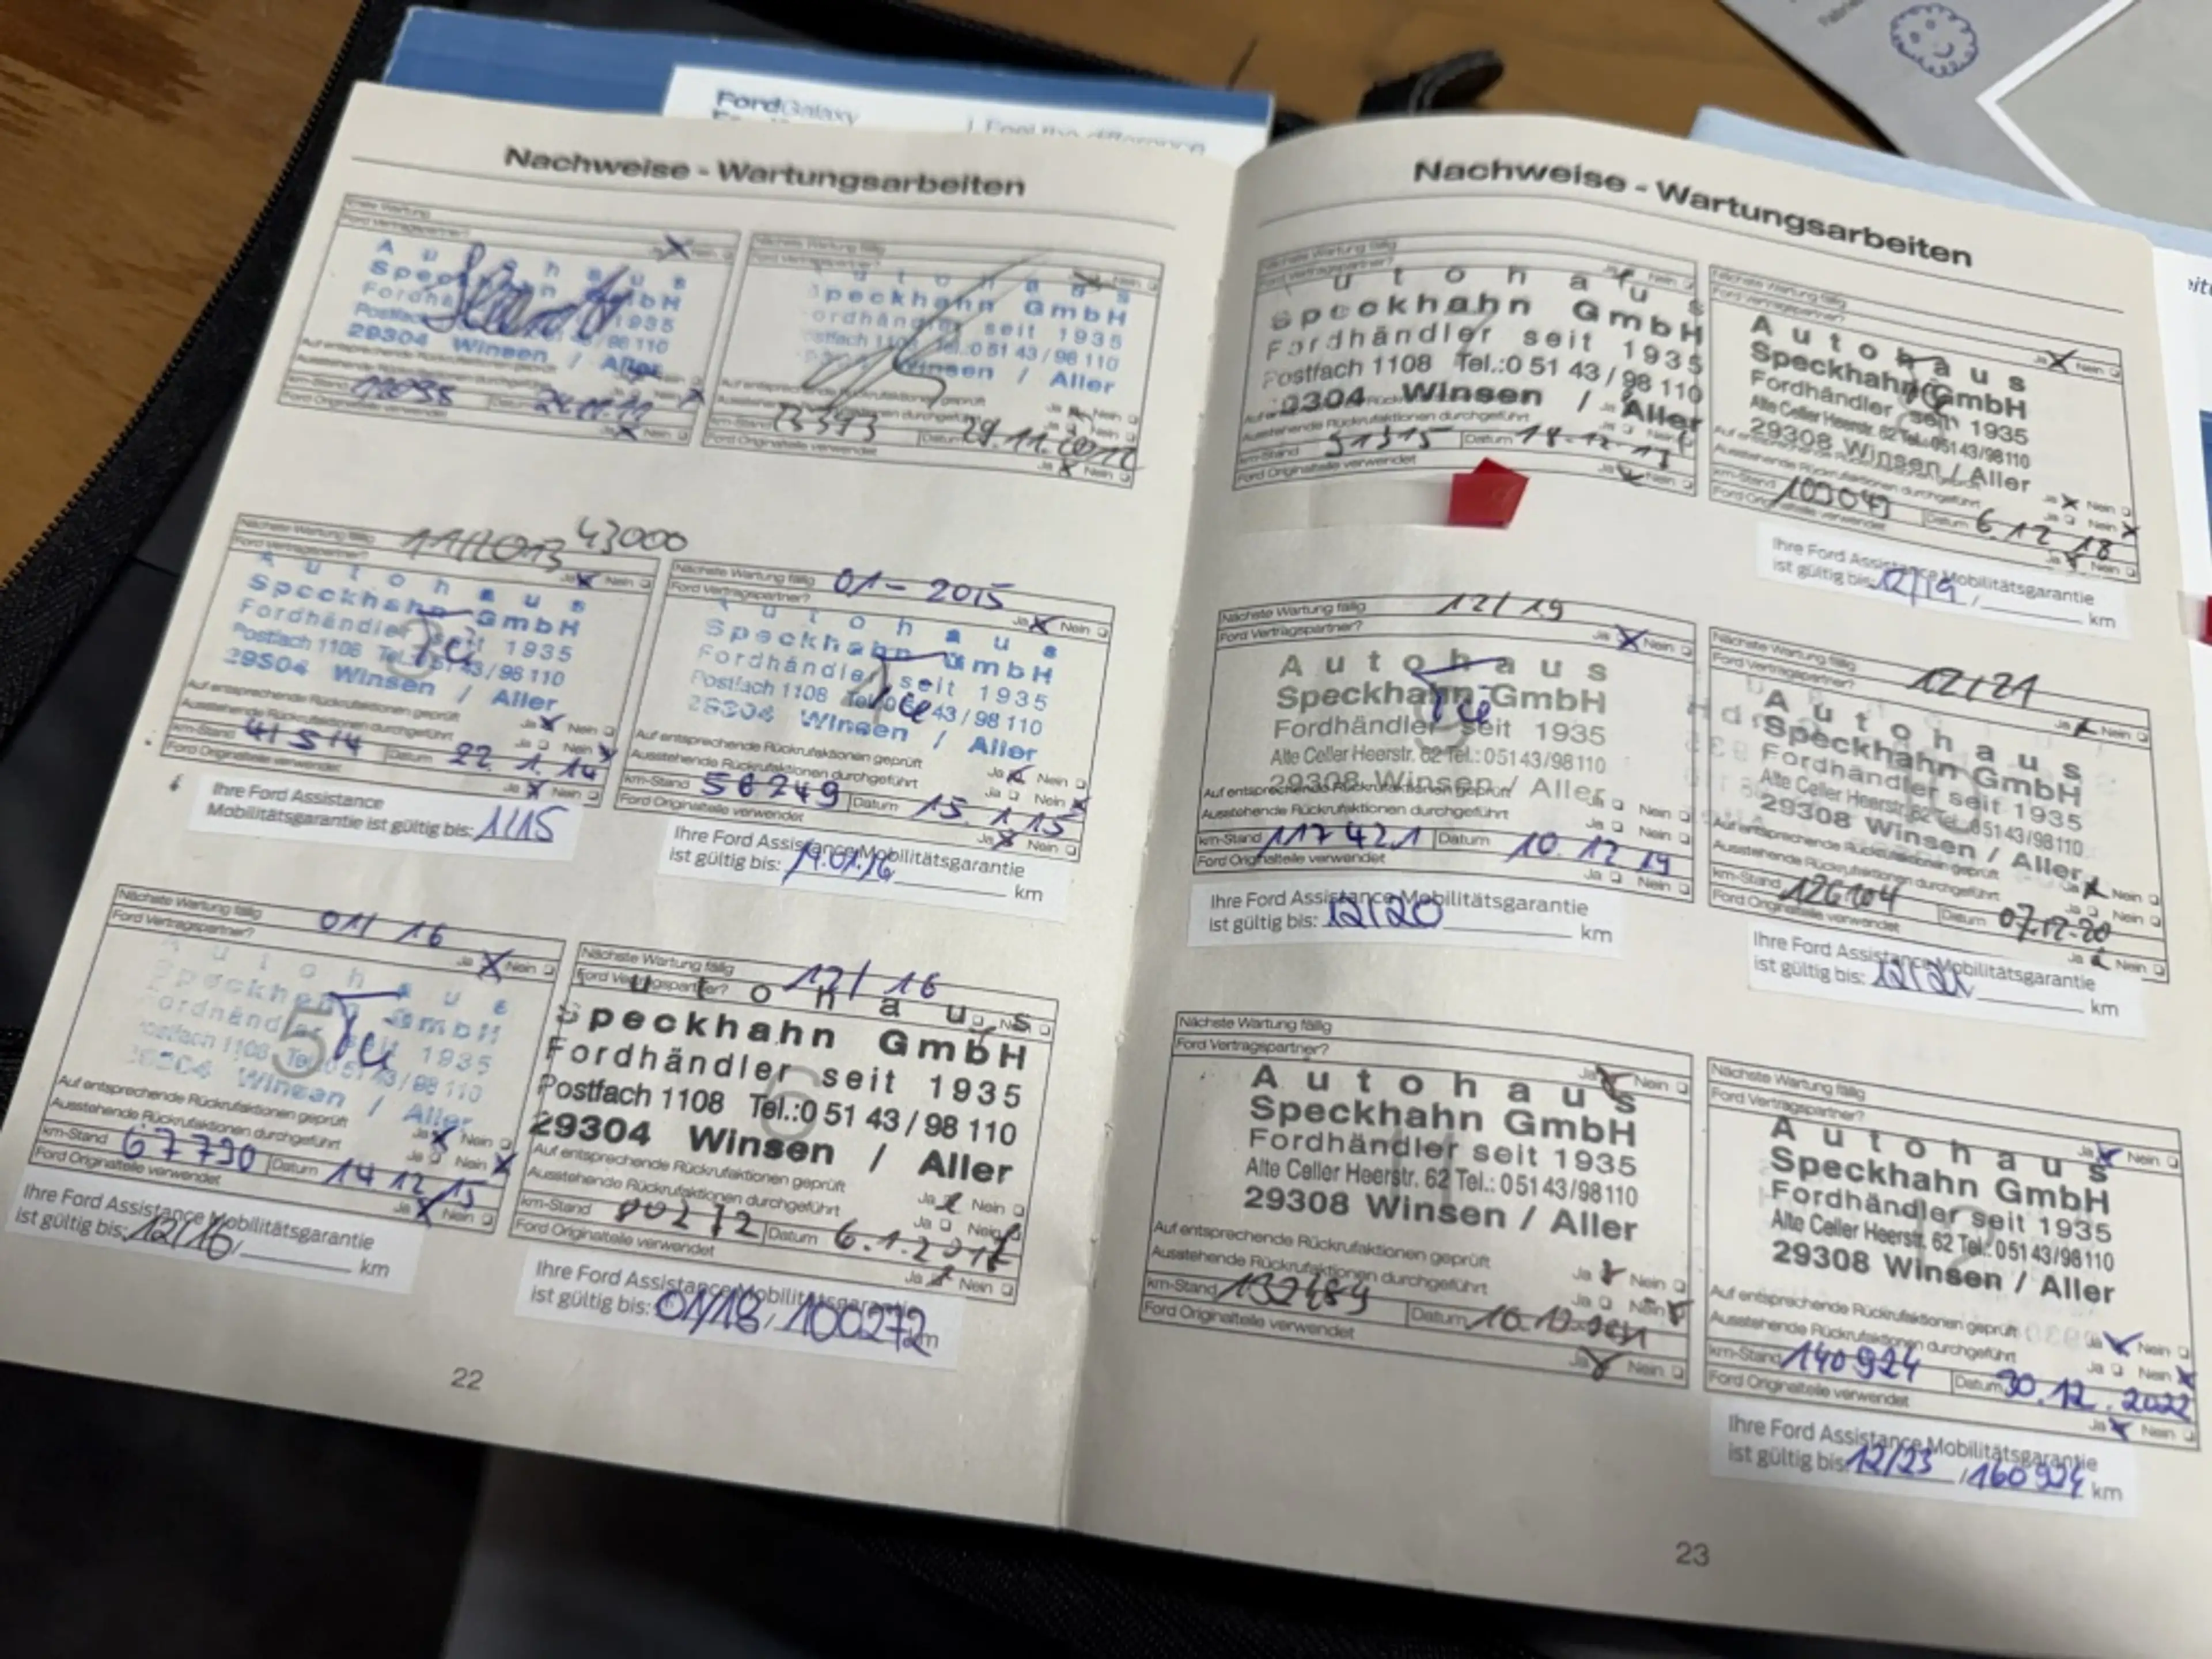 FordGalaxy
Feel the difference
Nachweise - Wartungsarbeiten
Ford Vertragspartner?
Ja Nein
A u t o h a u s
Speckhahn GmbH
Fordhändler seit 1935
Postfach 98 110
29304 Winsen / Aller
Auf entsprechende Rückrufaktionen geprüft
Ausstehende Rückrufaktionen durchgeführt
km-Stand Datum 24.11.11
Ford Originalteile verwendet
Ja Nein
Nächste Wartung fällig
Ford Vertragspartner?
Nein
u t o h a u s
Speckhahn GmbH
ordhändler seit 1935
ostfach 1108 Tel.:0 51 43 / 98 110
Winsen / Aller
Auf entsprechende Rückrufaktionen geprüft
Ausstehende Rückrufaktionen durchgeführt
km-Stand Datum 29.11.2012
Ford Originalteile verwendet
Ja Nein
Nächste Wartung fällig 11/2013 43000
Ford Vertragspartner?
Ja Nein
A u t o h a u s
Speckhahn GmbH
Fordhändler seit 1935
Postfach 1108 Tel. 51 43 / 98 110
29304 Winsen / Aller
Auf entsprechende Rückrufaktionen geprüft
Ja Nein
Ausstehende Rückrufaktionen durchgeführt
Ja Nein
km-Stand 41514 Datum 22.1.14
Ford Originalteile verwendet
Ja Nein
Ihre Ford Assistance
Mobilitätsgarantie ist gültig bis: 1/15
Nächste Wartung fällig 01-2015
Ford Vertragspartner?
Ja Nein
u t o h a u s
Speckhahn GmbH
Fordhändler seit 1935
Postfach 1108 Tel. 43 / 98 110
29304 Winsen / Aller
Auf entsprechende Rückrufaktionen geprüft
Ja Nein
Ausstehende Rückrufaktionen durchgeführt
Ja Nein
km-Stand 56249 Datum 15.1.15
Ford Originalteile verwendet
Ja Nein
Ihre Ford Assistance Mobilitätsgarantie
ist gültig bis: 14.01.16 km
Nächste Wartung fällig 01/16
Ford Vertragspartner?
Ja Nein
A u t o h a u s
Speckhahn GmbH
ordhändler seit 1935
ostfach 1108 Tel. 51 43 / 98 110
Winsen / Aller
5
Auf entsprechende Rückrufaktionen geprüft
Ja Nein
Ausstehende Rückrufaktionen durchgeführt
Ja Nein
km-Stand 67730 Datum 14.12.15
Ford Originalteile verwendet
Ja Nein
Ihre Ford Assistance Mobilitätsgarantie
ist gültig bis: 12/16 / km
Nächste Wartung fällig 12/16
Ford Vertragspartner?
u t o h a u s
Speckhahn GmbH
Fordhändler seit 1935
Postfach 1108 Tel.:0 51 43 / 98 110
29304 Winsen / Aller
6
Auf entsprechende Rückrufaktionen geprüft
Ja Nein
Ausstehende Rückrufaktionen durchgeführt
Ja Nein
km-Stand Datum 6.1.2017
Ford Originalteile verwendet
Ja Nein
Ihre Ford Assistance Mobilitätsgarantie
ist gültig bis: 01/18 / 100272 km
22
Nachweise - Wartungsarbeiten
Nächste Wartung fällig
Ford Vertragspartner?
Nein
u t o h a u s
Speckhahn GmbH
Fordhändler seit 1935
Postfach 1108 Tel.:0 51 43 / 98 110
9304 Winsen / Aller
Ausstehende Rückrufaktionen durchgeführt
km-Stand 91315 Datum 18.12.17
Ford Originalteile verwendet
Ja Nein
Nächste Wartung fällig
Ford Vertragspartner?
Ja Nein
A u t o h a u s
Speckhahn GmbH
Fordhändler seit 1935
Alte Celler Heerstr. 62 Tel.: 05143/98110
29308 Winsen / Aller
Auf entsprechende Rückrufaktionen geprüft
Ja Nein
Ausstehende Rückrufaktionen durchgeführt
Ja Nein
km-Stand 103043 Datum 6.12.18
Ford Originalteile verwendet
Ja Nein
Ihre Ford Assistance Mobilitätsgarantie
ist gültig bis: 12/19 / km
Nächste Wartung fällig 12/19
Ford Vertragspartner?
Ja Nein
A u t o h a u s
Speckhahn GmbH
Fordhändler seit 1935
Alte Celler Heerstr. 62 Tel.: 05143/98110
29308 Winsen / Aller
Auf entsprechende Rückrufaktionen geprüft
Ja Nein
Ausstehende Rückrufaktionen durchgeführt
Ja Nein
km-Stand 117421 Datum 10.12.19
Ford Originalteile verwendet
Ja Nein
Ihre Ford Assistance Mobilitätsgarantie
ist gültig bis: 12/20 km
Nächste Wartung fällig 12/21
Ford Vertragspartner?
Ja Nein
A u t o h a u s
Speckhahn GmbH
Fordhändler seit 1935
Alte Celler Heerstr. 62 Tel.: 05143/98110
29308 Winsen / Aller
Auf entsprechende Rückrufaktionen geprüft
Ja Nein
Ausstehende Rückrufaktionen durchgeführt
Ja Nein
km-Stand 126104 Datum 07.12.20
Ford Originalteile verwendet
Ja Nein
Ihre Ford Assistance Mobilitätsgarantie
ist gültig bis: 12/21 km
Nächste Wartung fällig
Ford Vertragspartner?
Ja Nein
A u t o h a u s
Speckhahn GmbH
Fordhändler seit 1935
Alte Celler Heerstr. 62 Tel.: 05143/98110
29308 Winsen / Aller
Auf entsprechende Rückrufaktionen geprüft
Ja Nein
Ausstehende Rückrufaktionen durchgeführt
Ja Nein
km-Stand 132489 Datum
Ford Originalteile verwendet
Ja Nein
Nächste Wartung fällig
Ford Vertragspartner?
Ja Nein
A u t o h a u s
Speckhahn GmbH
Fordhändler seit 1935
Alte Celler Heerstr. 62 Tel.: 05143/98110
29308 Winsen / Aller
Auf entsprechende Rückrufaktionen geprüft
Ja Nein
Ausstehende Rückrufaktionen durchgeführt
Ja Nein
km-Stand 140924 Datum 30.12.2022
Ford Originalteile verwendet
Ja Nein
Ihre Ford Assistance Mobilitätsgarantie
ist gültig bis: 12/23 / 160924 km
23